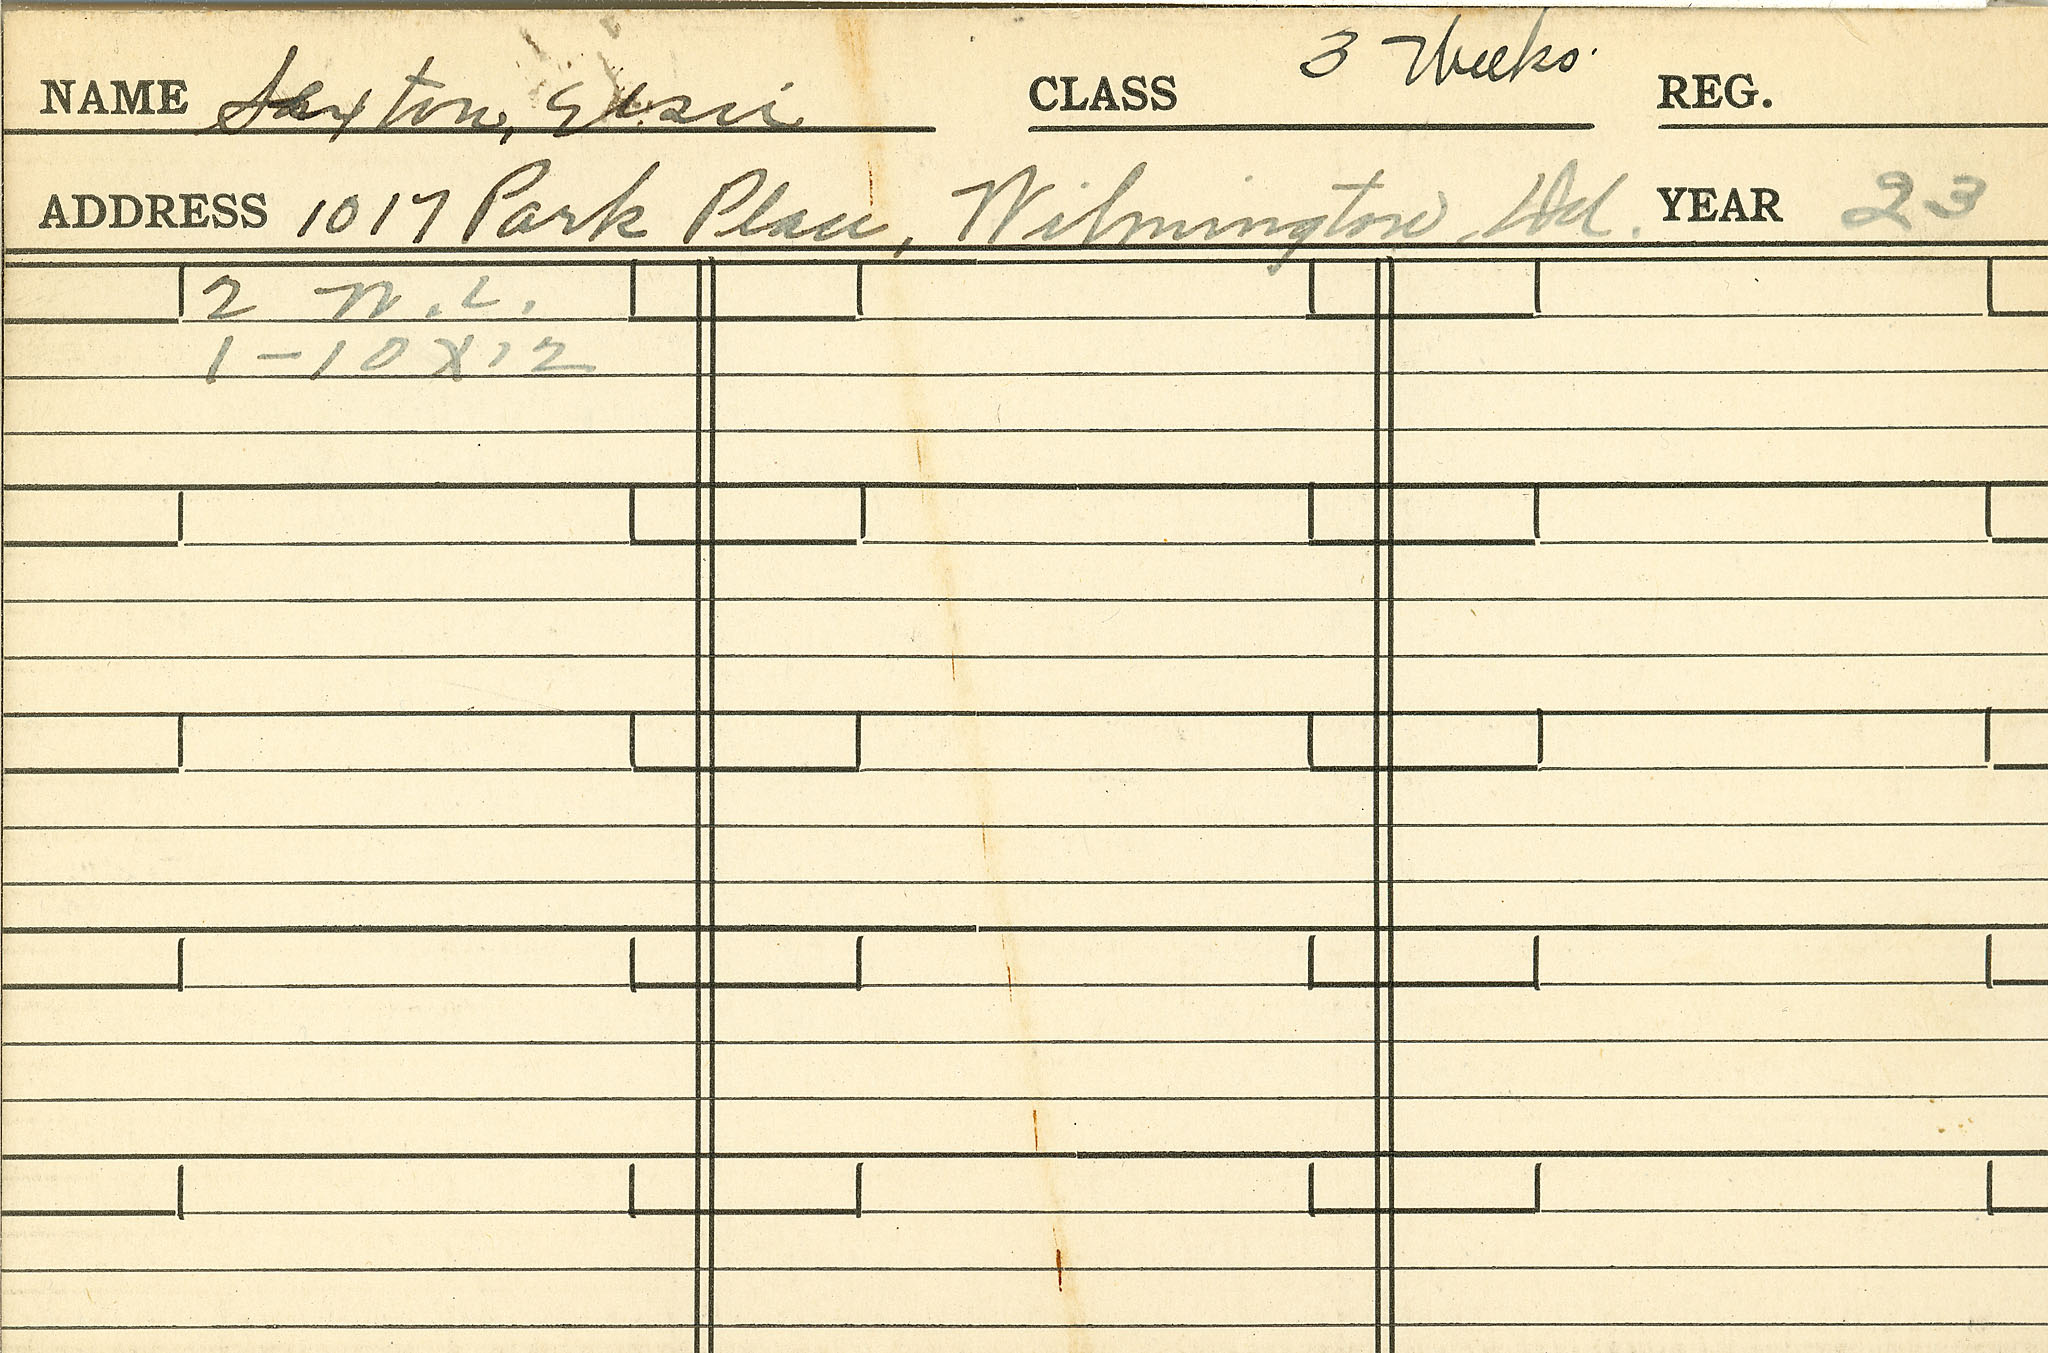 NAME Saxton, Elsie CLASS 3 Weeks REG.
ADDRESS 1017 Park Place, Wilmington, Del. YEAR 23
2 N.L.
1-10X12